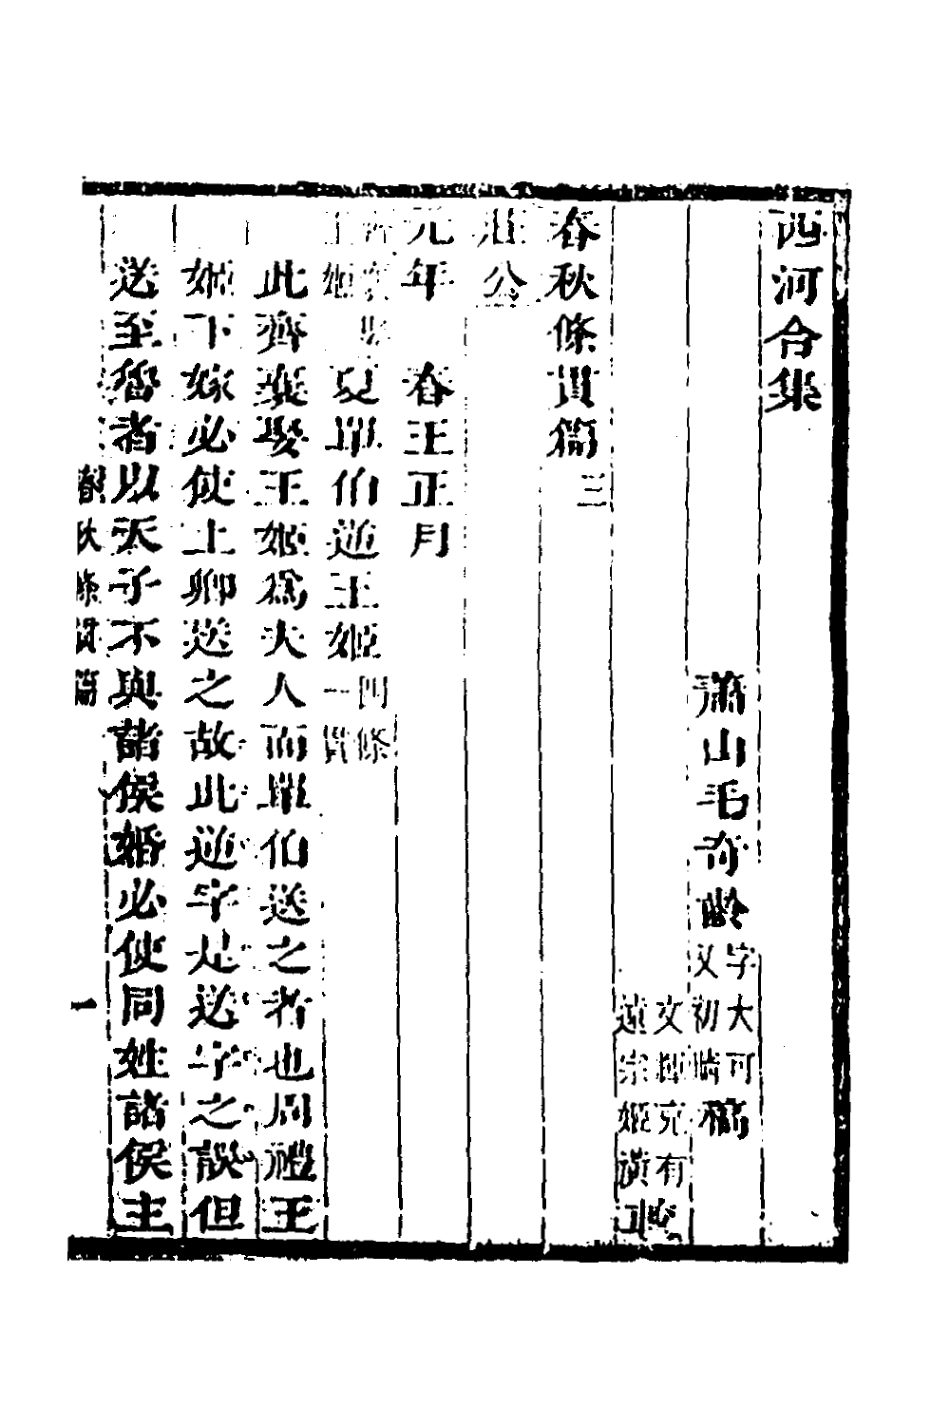 西河合集
蕭山毛奇齡字大可又初晴稿
文輝充有遠宗姬潢
春秋條貫篇三
莊公
元年　春王正月
齊襄娶王姬　夏單伯逆王姬四條一貫
此齊襄娶王姬爲夫人而單伯送之者也周禮王
姬下嫁必使上卿送之故此逆字是送字之誤但
送至魯者以天子不與諸侯婚必使同姓諸侯主
春秋條貫篇　一